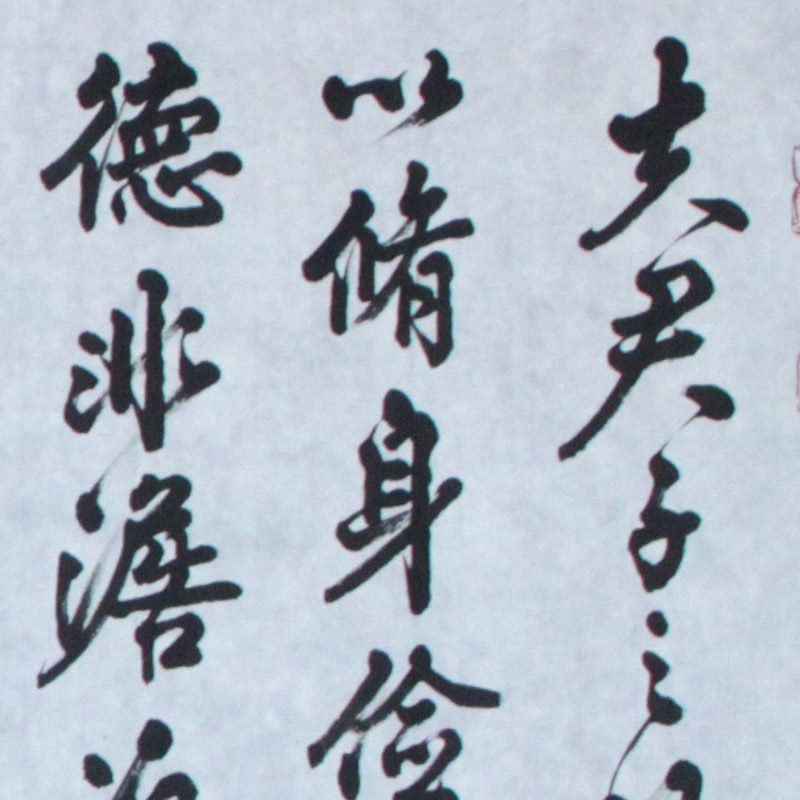 夫君子之
以脩身儉
德非澹